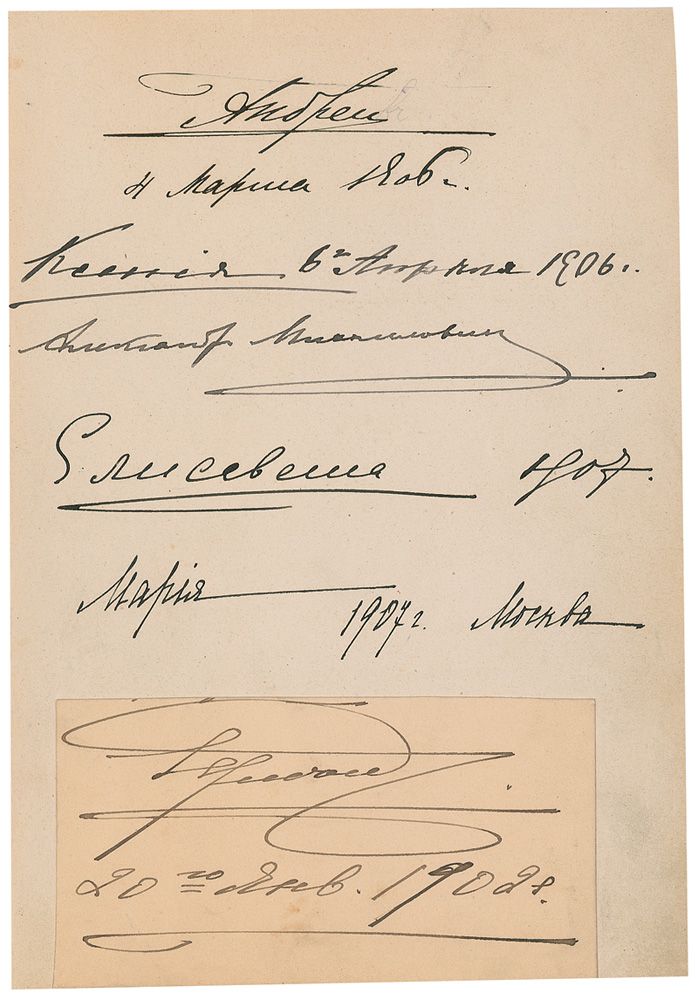 Андрей
4 Марта 1906 г.
Ксенія 6го Апрѣля 1906 г.
Александр Михаилович
Елисавета 1907.
Марія 1907 г. Москва
20го Янв. 1902 г.